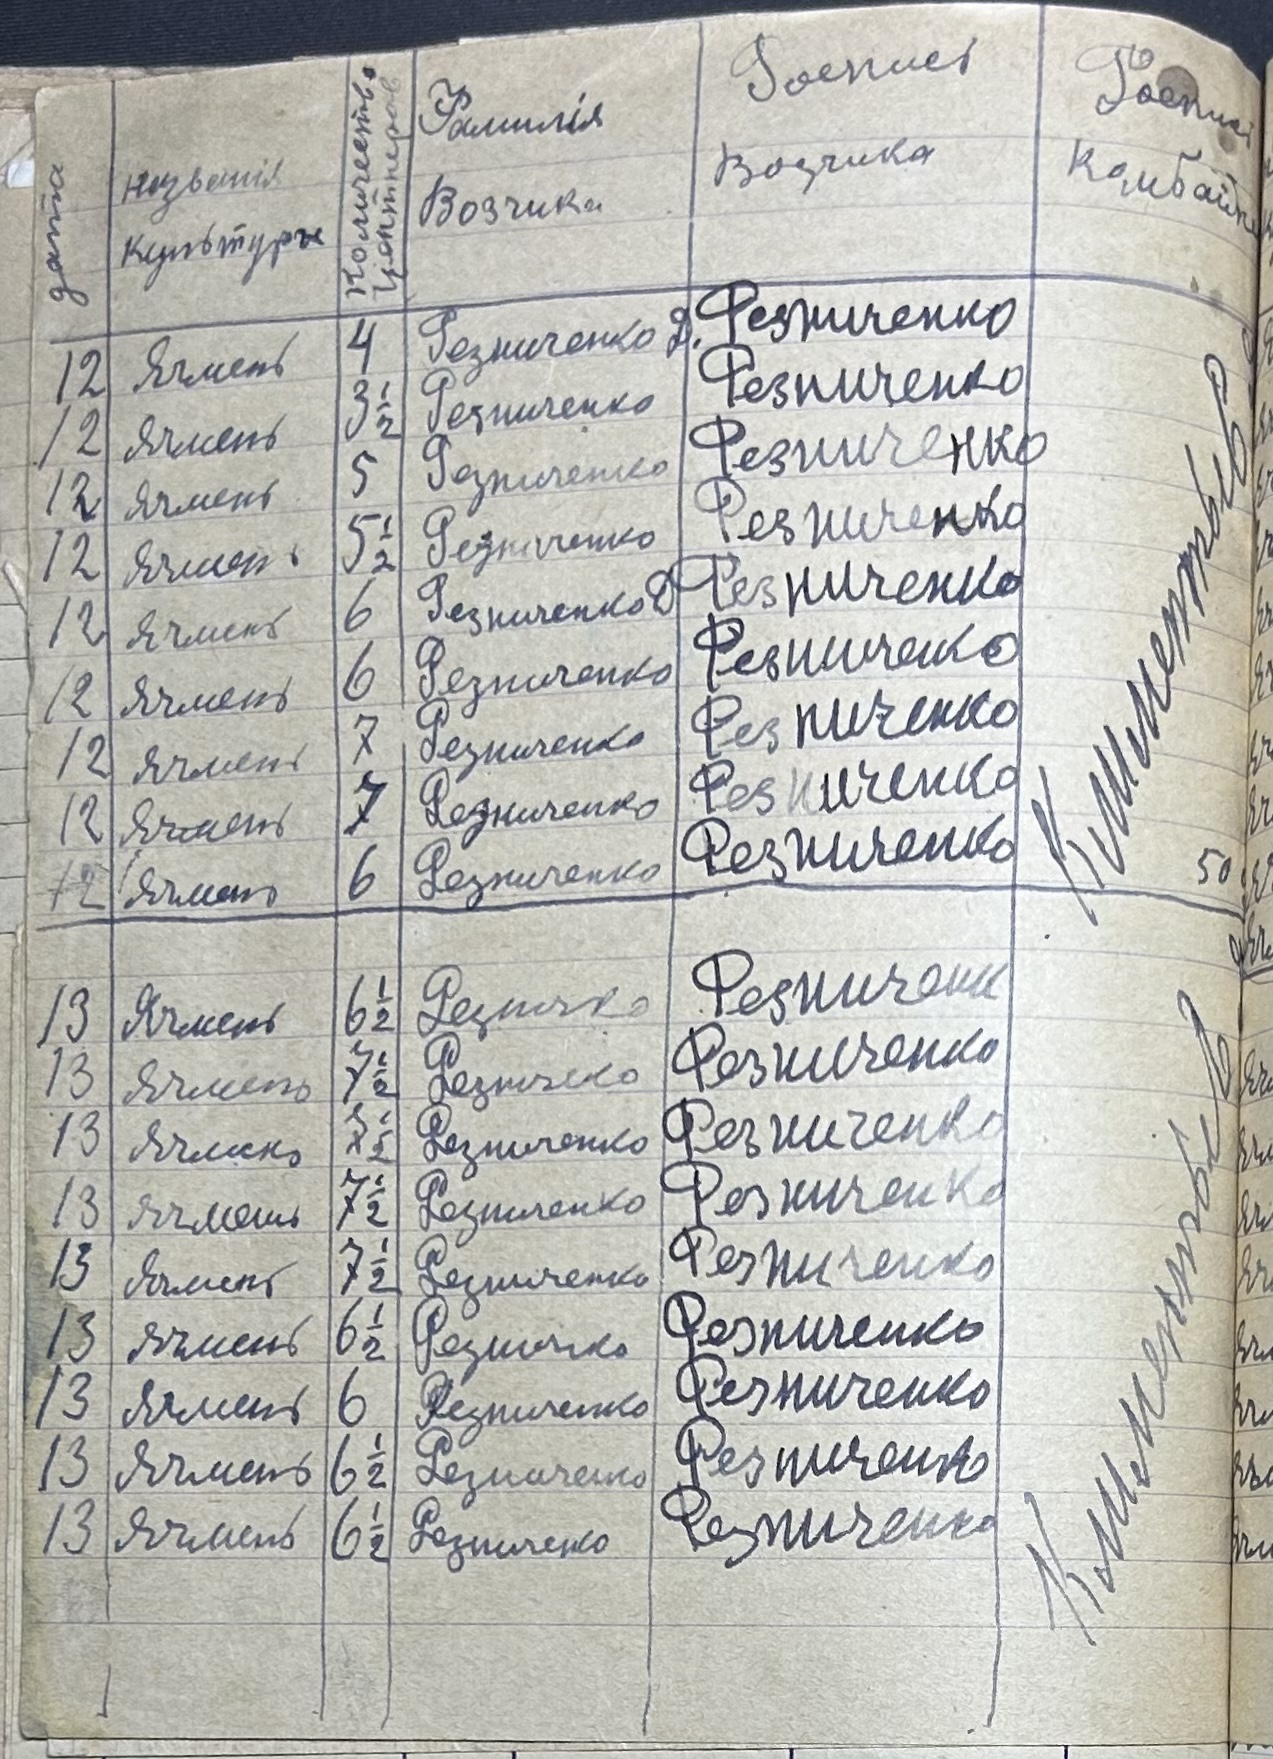 дата
названія
культуры
Количество
Центнеров
Фамилія
Возчика
Роспись
Возчика
Роспись
Комбайне
12 Ячмень 4 Резниченко Д. Резниченко
12 Ячмень 3 1/2 Резниченко Резниченко
12 Ячмень 5 Резниченко Резниченко
12 Ячмень 5 1/2 Резниченко Резниченко
12 Ячмень 6 Резниченко Д Резниченко
12 Ячмень 6 Резниченко Резниченко
12 Ячмень 7 Резниченко Резниченко
12 Ячмень 7 Резниченко Резниченко
12 Ячмень 6 Резниченко Резниченко 50
Климентьев
13 Ячмень 6 1/2 Резничко Резниченк
13 Ячмень 7 1/2 Резничеко Резниченко
13 Ячмень 7 1/2 Резниченко Резниченко
13 Ячмень 7 1/2 Резниченко Резниченко
13 Ячмень 7 1/2 Резниченко Резниченко
13 Ячмень 6 1/2 Резничко Резниченко
13 Ячмень 6 Резниченко Резниченко
13 Ячмень 6 1/2 Резниченко Резниченко
13 Ячмень 6 1/2 Резниченко Резниченко
Климентьев